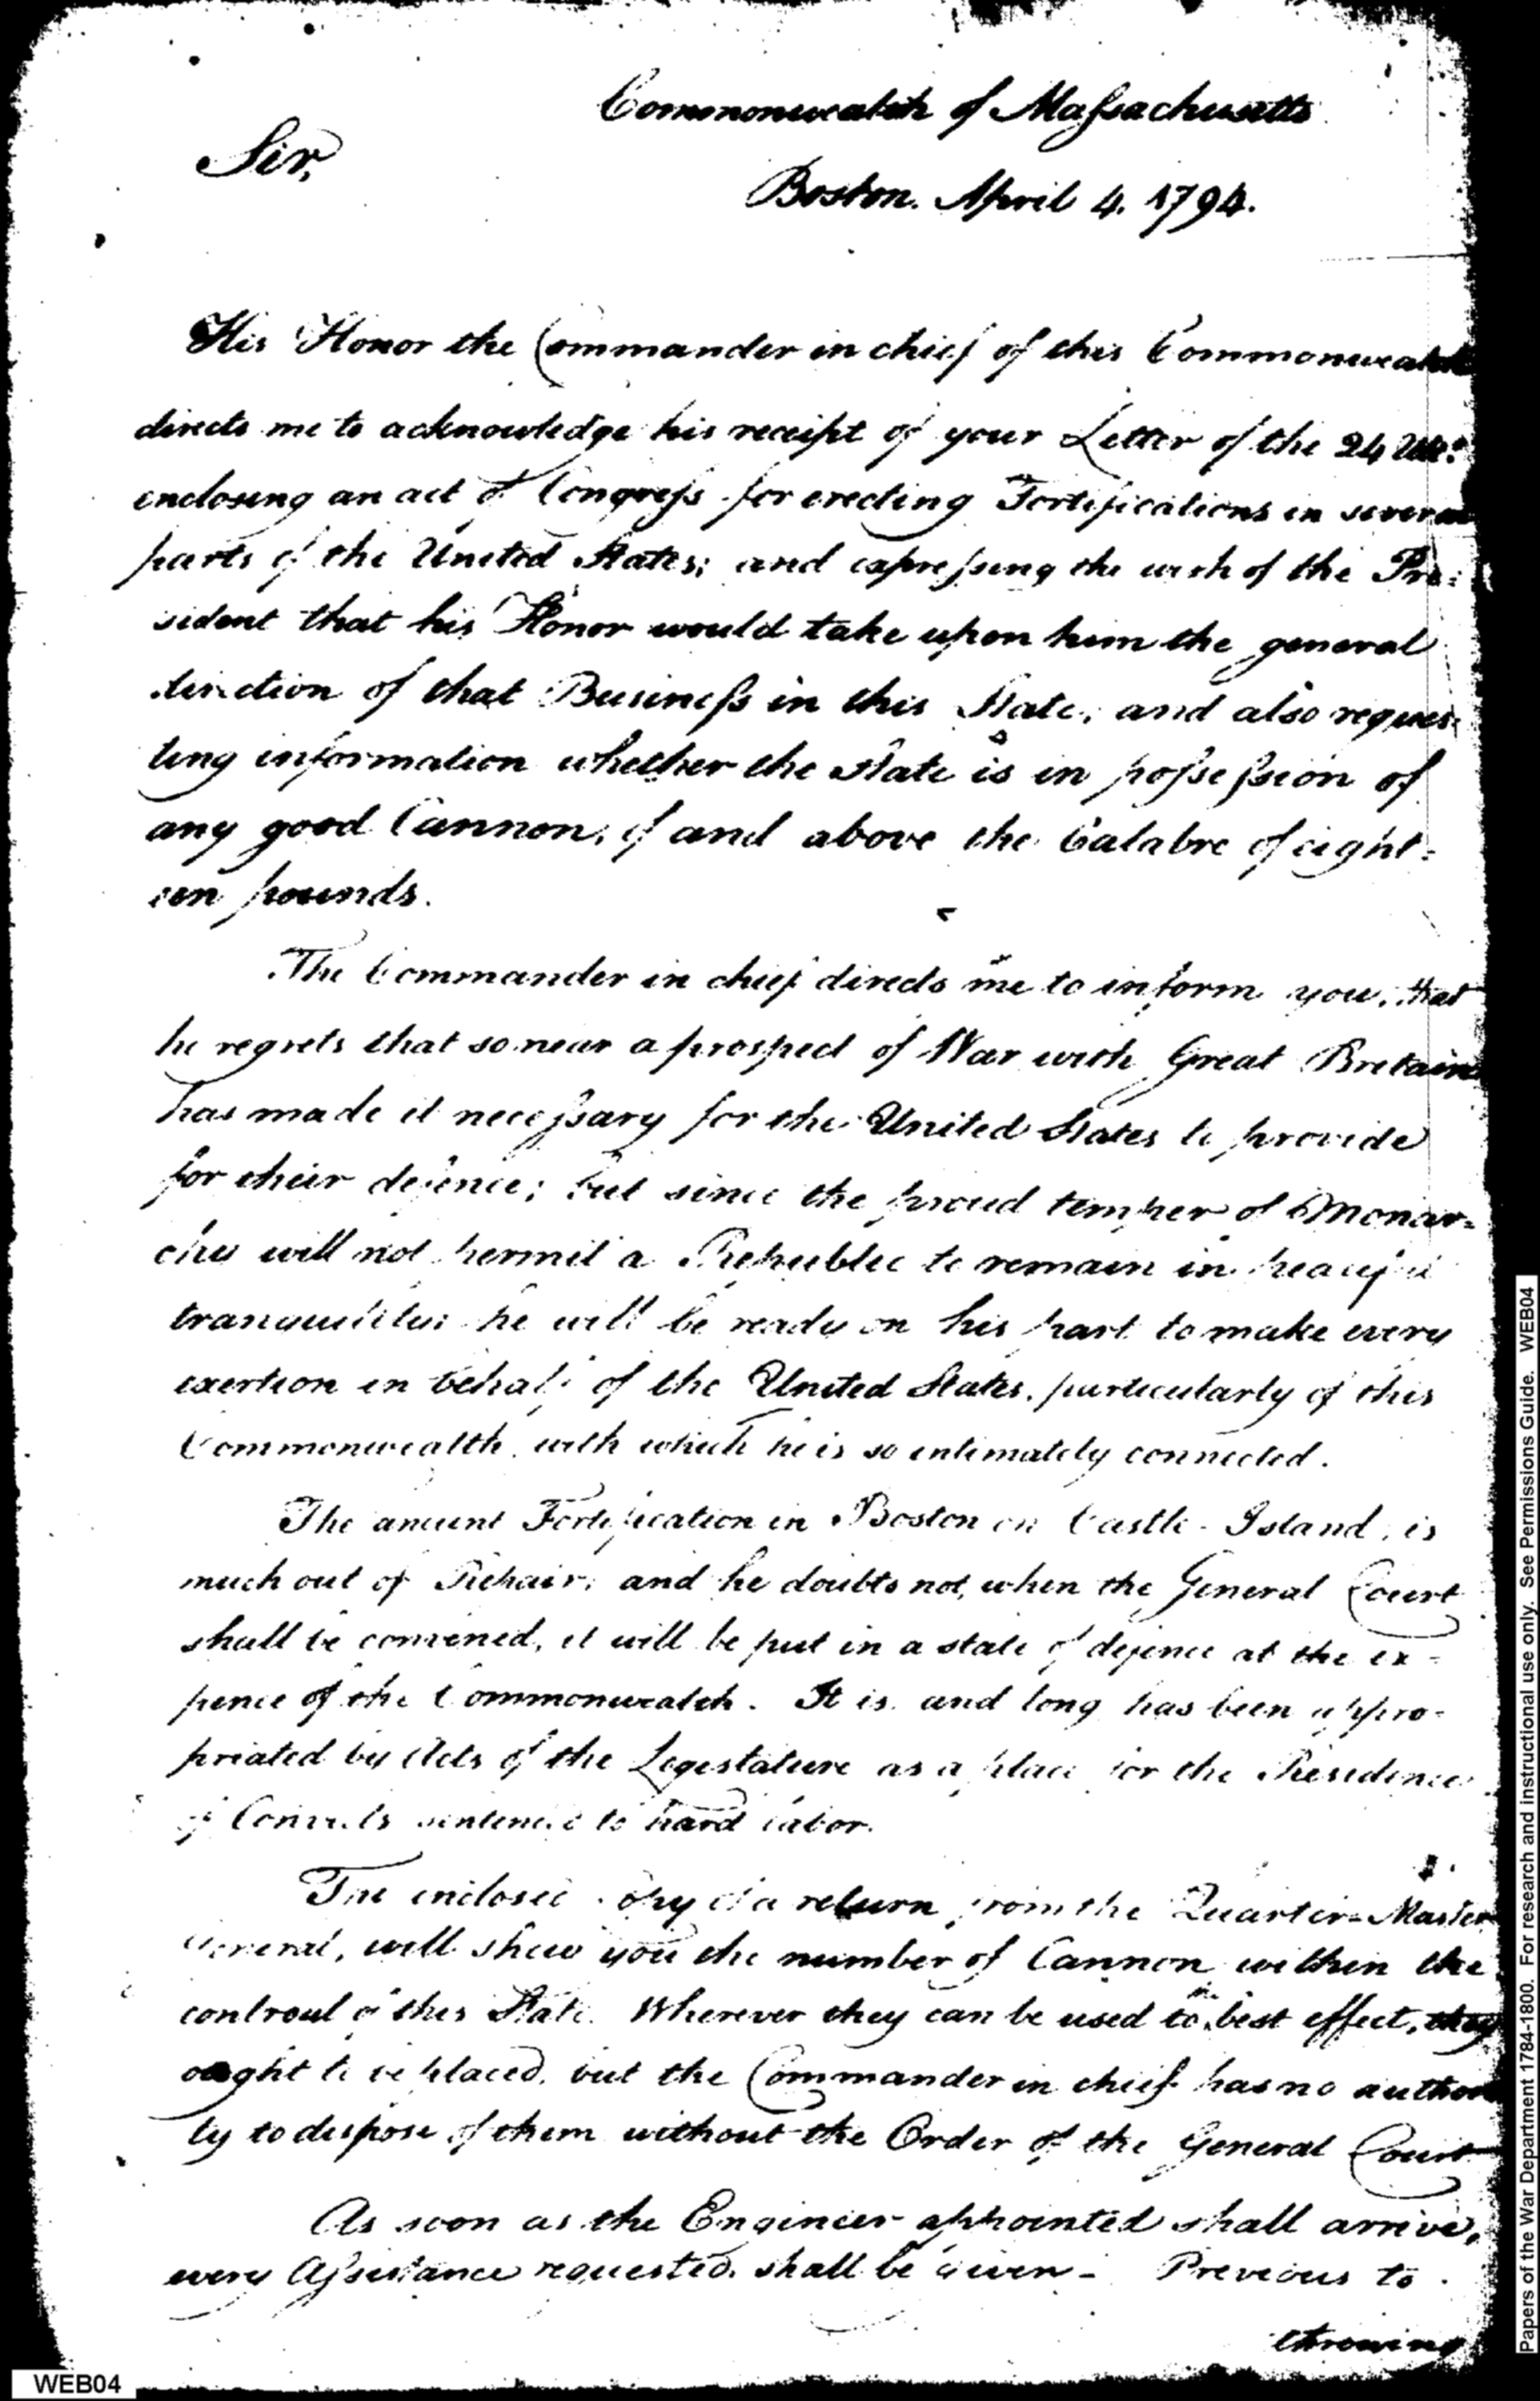 Commonwealth of Massachusetts
Sir,
Boston. April 4. 1794.
His Honor the Commander in chief of this Commonwealth
directs me to acknowledge his receipt of your Letter of the 24 Ult.
enclosing an act of Congress for erecting Fortifications in several
parts of the United States; and expressing the wish of the Pre=
sident that his Honor would take upon him the general
direction of that Business in this State, and also reques=
ting information whether the State is in possession of
any good Cannon, of and above the Calabre of eight=
een pounds.
The Commander in chief directs me to inform you, that
he regrets that so near a prospect of War with Great Bretain
has made it necessary for the United States to provide
for their defence; but since the proud temper of Monar=
chs will not permit a Republic to remain in peaceful
tranquility; he will be ready on his part to make every
exertion in behalf of the United States, particularly of this
Commonwealth, with which he is so intimately connected.
The ancient Fortification in Boston on Castle-Island, is
much out of Repair, and he doubts not, when the General Court
shall be convened, it will be put in a state of defence at the ex-
pence of the Commonwealth. It is and long has been appro-
priated by Acts of the Legestature as a place for the Residence
of Convicts sentenced to hard labor.
The inclosed copy of a return from the Quarter=Master
General, will shew you the number of Cannon within the
controul of this State. Wherever they can be used to best effect, they
ought to be placed, but the Commander in chief has no authori
ty to dispose of them without the Order of the General Court
As soon as the Engineer appointed shall arrive,
every Assistance requested, shall be given - Previous to
throwing
WEB04
Papers of the War Department 1784-1800. For research and instructional use only. See Permissions Guide. WEB04